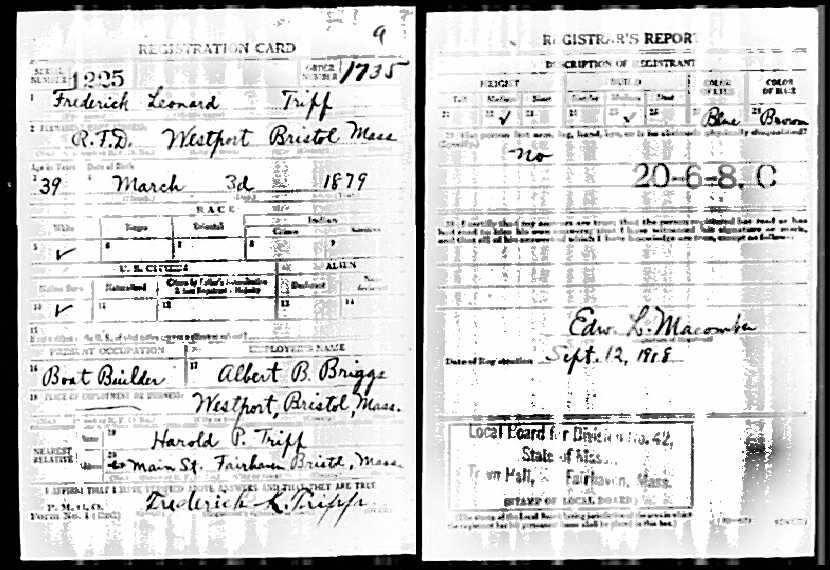 9
REGISTRATION CARD
SERIAL NUMBER 1225 ORDER NUMBER 1735
1 Frederick Leonard Tripp
2 R.F.D. Westport Bristol Mass
Age in Years Date of Birth
39 March 3d 1879
RACE
White Negro Oriental Indian
Citizen
5 ✓ 6 7 8 9
U. S. CITIZEN ALIEN
Native Born Naturalized Citizen by Father's Naturalization Before Registrant's Majority Declarant
10 ✓ 11 12 13 14
15
PRESENT OCCUPATION EMPLOYER'S NAME
16 Boat Builder 17 Albert B. Briggs
18 PLACE OF EMPLOYMENT OR BUSINESS:
Westport, Bristol, Mass.
NEAREST RELATIVE Name 19 Harold P. Tripp
Address 20 Main St. Fairhaven Bristol, Mass.
I AFFIRM THAT I HAVE VERIFIED ABOVE ANSWERS AND THAT THEY ARE TRUE
P. M. G. O.
Form No. 1 (Red) Frederick L. Tripp
REGISTRAR'S REPORT
DESCRIPTION OF REGISTRANT
HEIGHT BUILD COLOR OF EYES COLOR OF HAIR
Tall Medium Short Slender Medium Stout
21 22 ✓ 23 24 25 ✓ 26 27 Blue 28 Brown
29 Has person lost arm, leg, hand, eye, or is he obviously physically disqualified?
(Specify.)
No
20-6-8. C
30 I certify that my answers are true; that the person registered has read or has
had read to him his own answers; that I have witnessed his signature or mark,
and that all of his answers of which I have knowledge are true, except as follows:
Edw. L. Macomber
Date of Registration Sept. 12, 1918
Local Board for Division No. 42,
State of Mass.
Town Hall, Fairhaven, Mass.
(STAMP OF LOCAL BOARD)
(The stamp of the Local Board having jurisdiction of the area in which
the registrant has his permanent home shall be placed in this box.)